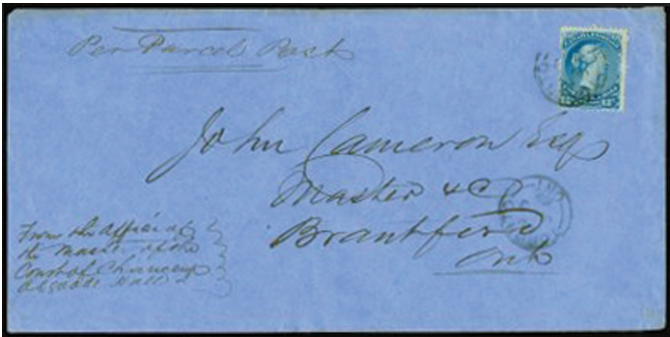 Per Parcel Post
John Cameron Esq
Master & C
Brantford
Ont
From the Office of
the Master of the
Court of Chancery
Osgoode Hall